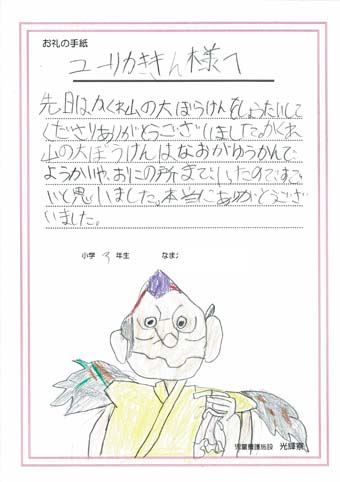 お礼の手紙
ユーリカききん様へ
先日はかくれ山の大ぼうけんをしょうたいして
くださりありがとうございました。かくれ
山の大ぼうけんはなおがゆうかんで、
ようかいや、おにの所まで いったのですごい
いと思いました。本当にありがとうござ
いました。
小学 3 年生 なまえ
児童養護施設 光輝寮